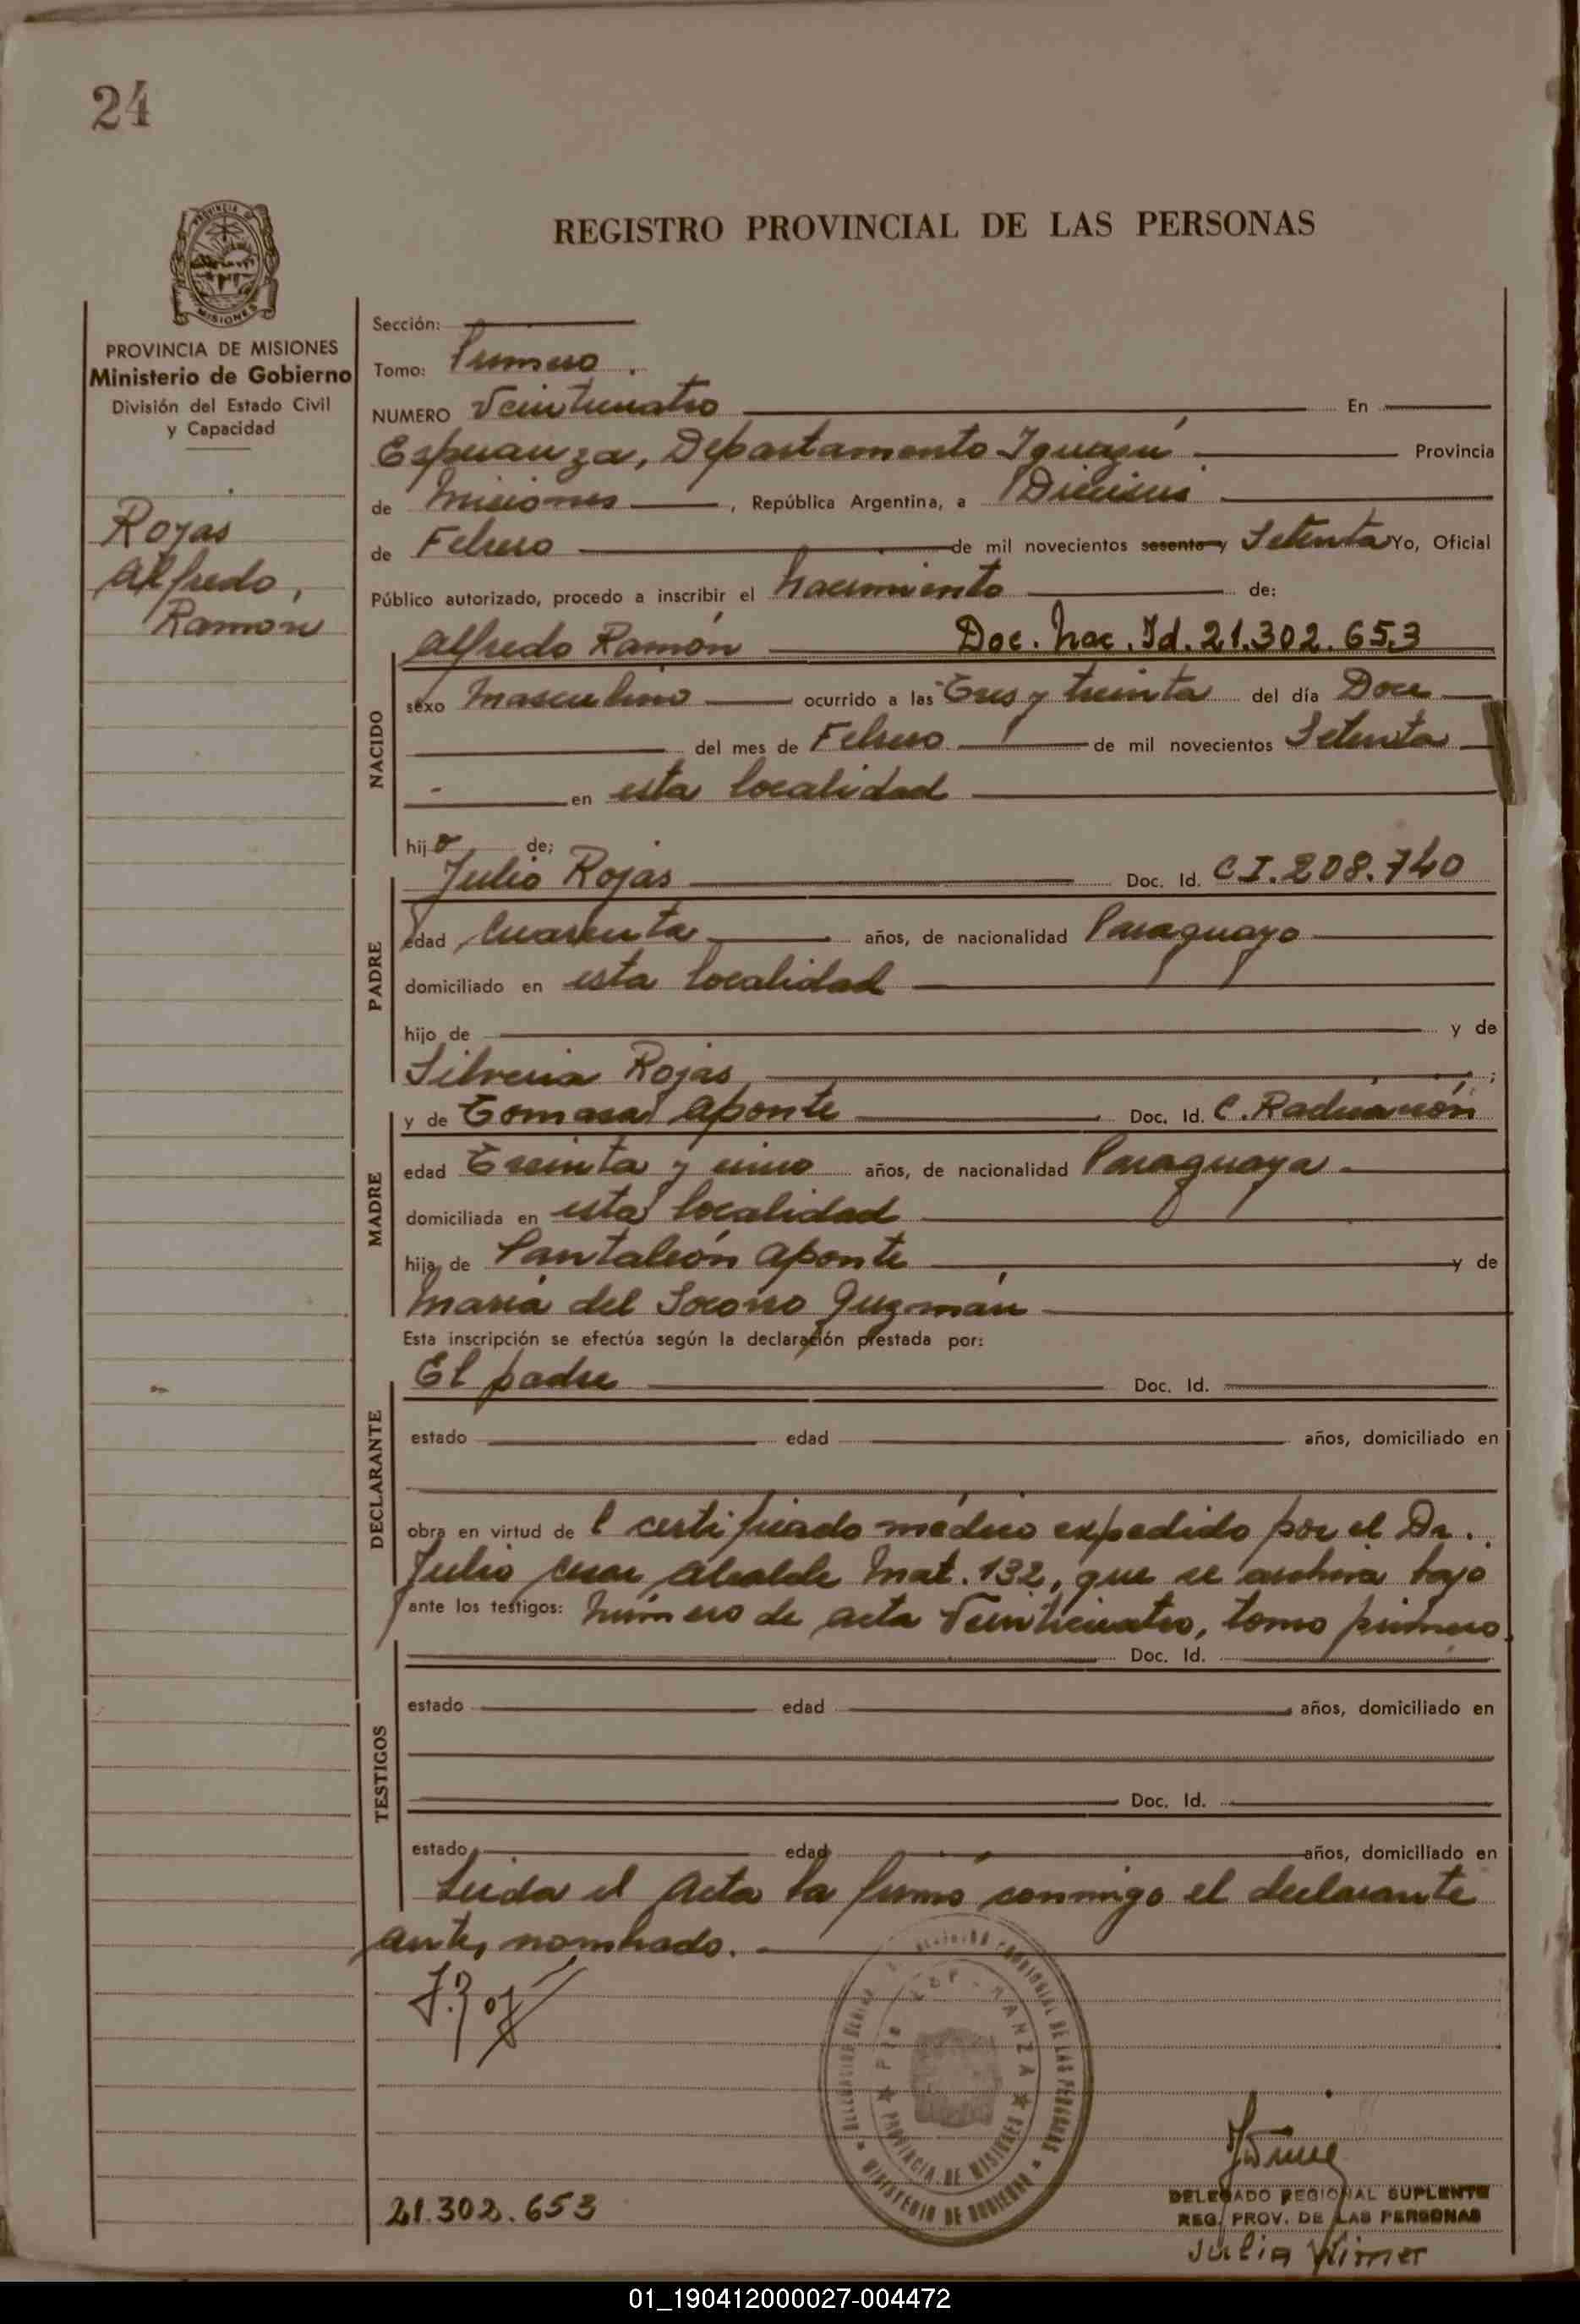 24
REGISTRO PROVINCIAL DE LAS PERSONAS
PROVINCIA DE MISIONES
MISIONES
PROVINCIA DE MISIONES
Ministerio de Gobierno
División del Estado Civil
y Capacidad
Rojas
Alfredo,
Ramon
Sección:
Tomo: Primero.
NUMERO Veinticuatro En
Esperanza, Departamento Iguazú Provincia
de Misiones, República Argentina, a Dieciseis
de Febrero de mil novecientos sesenta y Setenta Yo, Oficial
Público autorizado, procedo a inscribir el Nacimiento de:
Alfredo Ramón Doc. Nac. Id. 21.302.653
NACIDO
sexo Masculino ocurrido a las Tres y treinta del día Doce
del mes de Febrero de mil novecientos Setenta
en esta localidad
hijo de;
Julio Rojas Doc. Id. CI.208.740
PADRE
edad Cuarenta años, de nacionalidad Paraguayo
domiciliado en esta localidad
hijo de y de
Silveria Rojas ;
y de Tomasa Aponte Doc. Id. C. Radicación
MADRE
edad Treinta y cinco años, de nacionalidad Paraguaya
domiciliada en esta localidad
hija de Pantaleón Aponte y de
María del Socorro Guzmán
Esta inscripción se efectúa según la declaración prestada por:
El padre Doc. Id.
DECLARANTE
estado edad años, domiciliado en
obra en virtud de l certificado médico expedido por el Dr.
Julio Cesar Alcalde Mat. 132, que se archiva bajo
ante los testigos: Número de acta Veinticuatro, tomo primero.
Doc. Id.
TESTIGOS
estado edad años, domiciliado en
Doc. Id.
estado edad años, domiciliado en
Leída el Acta la firmó conmigo el declarante
antes nombrado.
PROVINCIA DE MISIONES
MINISTERIO DE GOBIERNO
21.302.653
DELEGADO REGIONAL SUPLENTE
REG. PROV. DE LAS PERSONAS
Julia Wimer
01_190412000027-004472